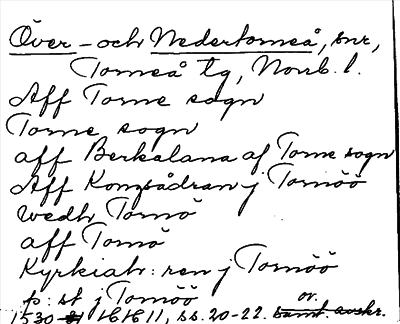 Över- och Nedertorneå, snr,
Torneå tg, Norrb. l.
Aff Torne sogn
Torne sogn
aff Berkalana af Torne sogn
Aff Kompådran j Tornöö
wedh Tornö
aff Tornö
Kyrkiatr: ren j Tornöö
p: st j Tornöö
1530 KlKl 11, ss. 20-22. or. avskr.